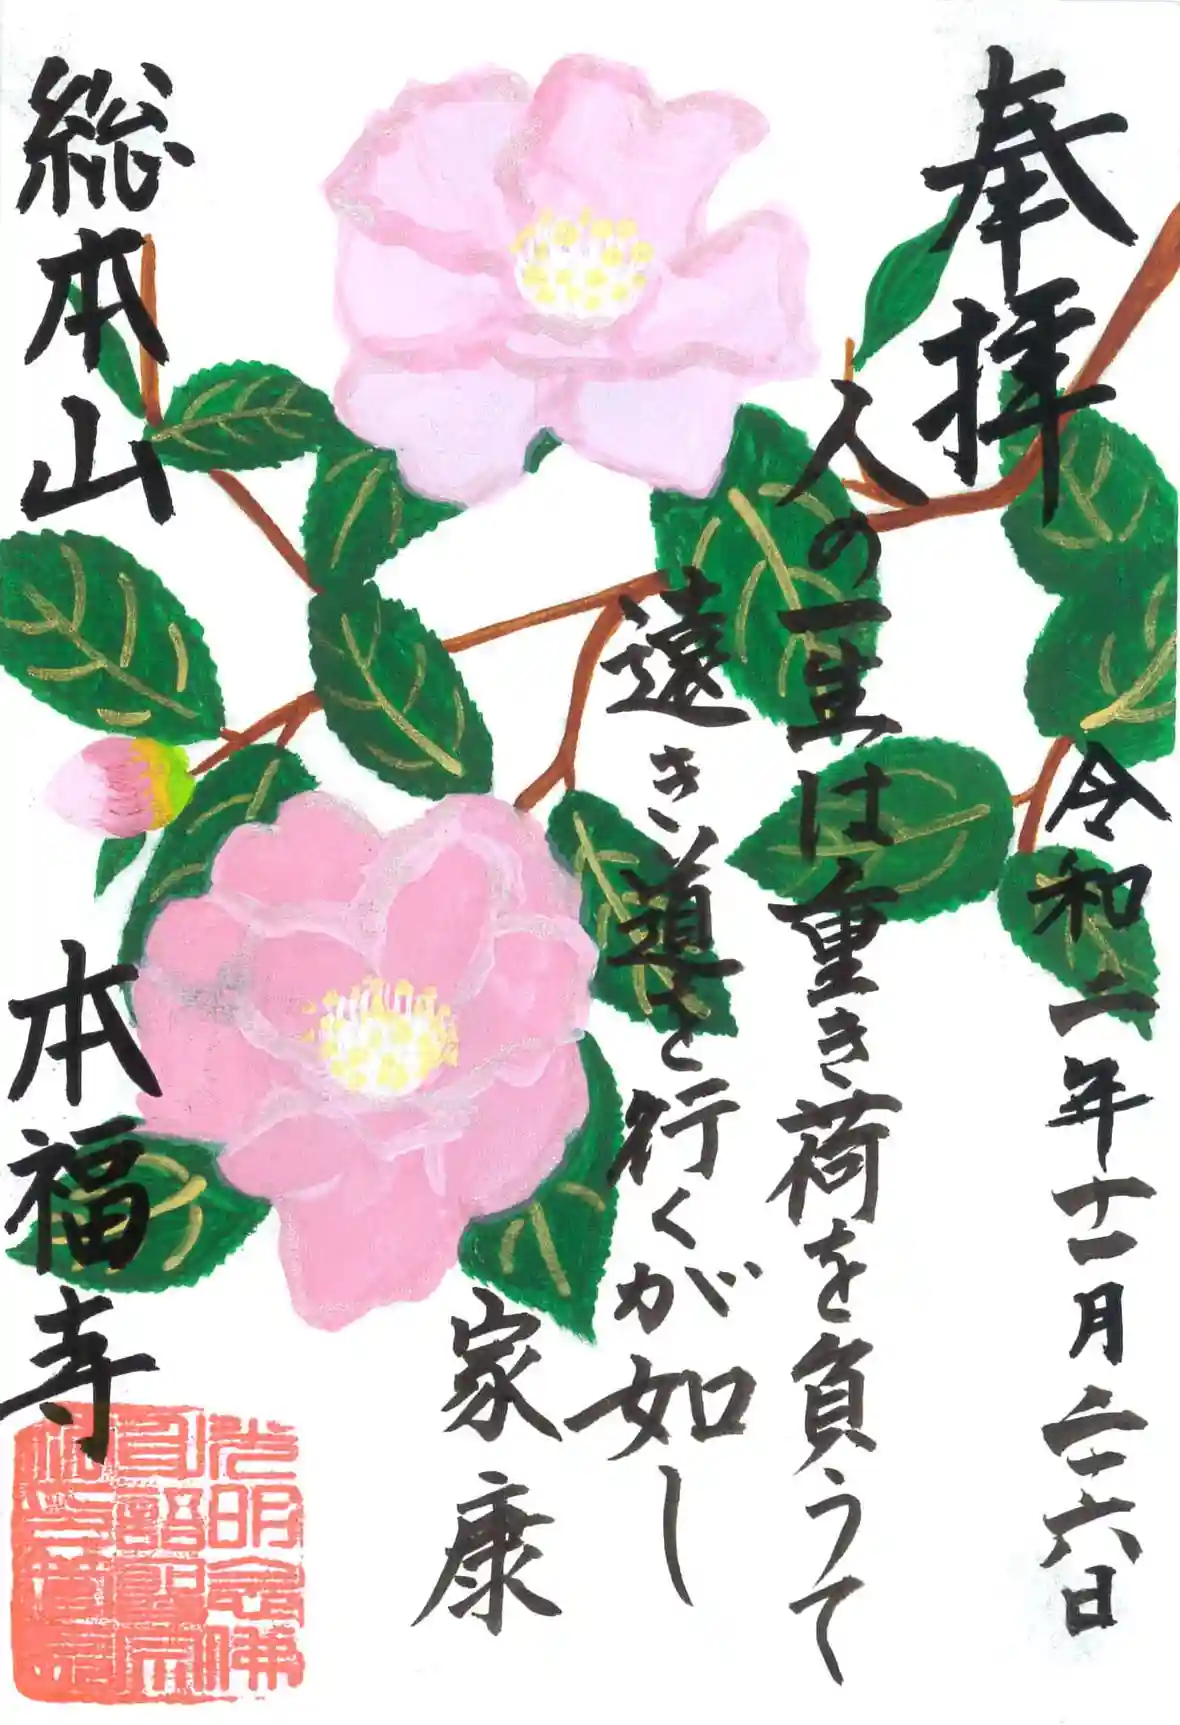 奉拝
令和二年十一月二十六日
人の一生は重き荷を負うて
遠き道を行くが如し
家康
総本山
本福寺
光明念佛